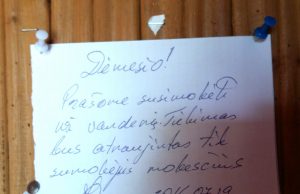 Dėmesio!
Prašome susimokėti
už vandenį. Tiekimas
bus atnaujintas tik
sumokėjus mokesčius